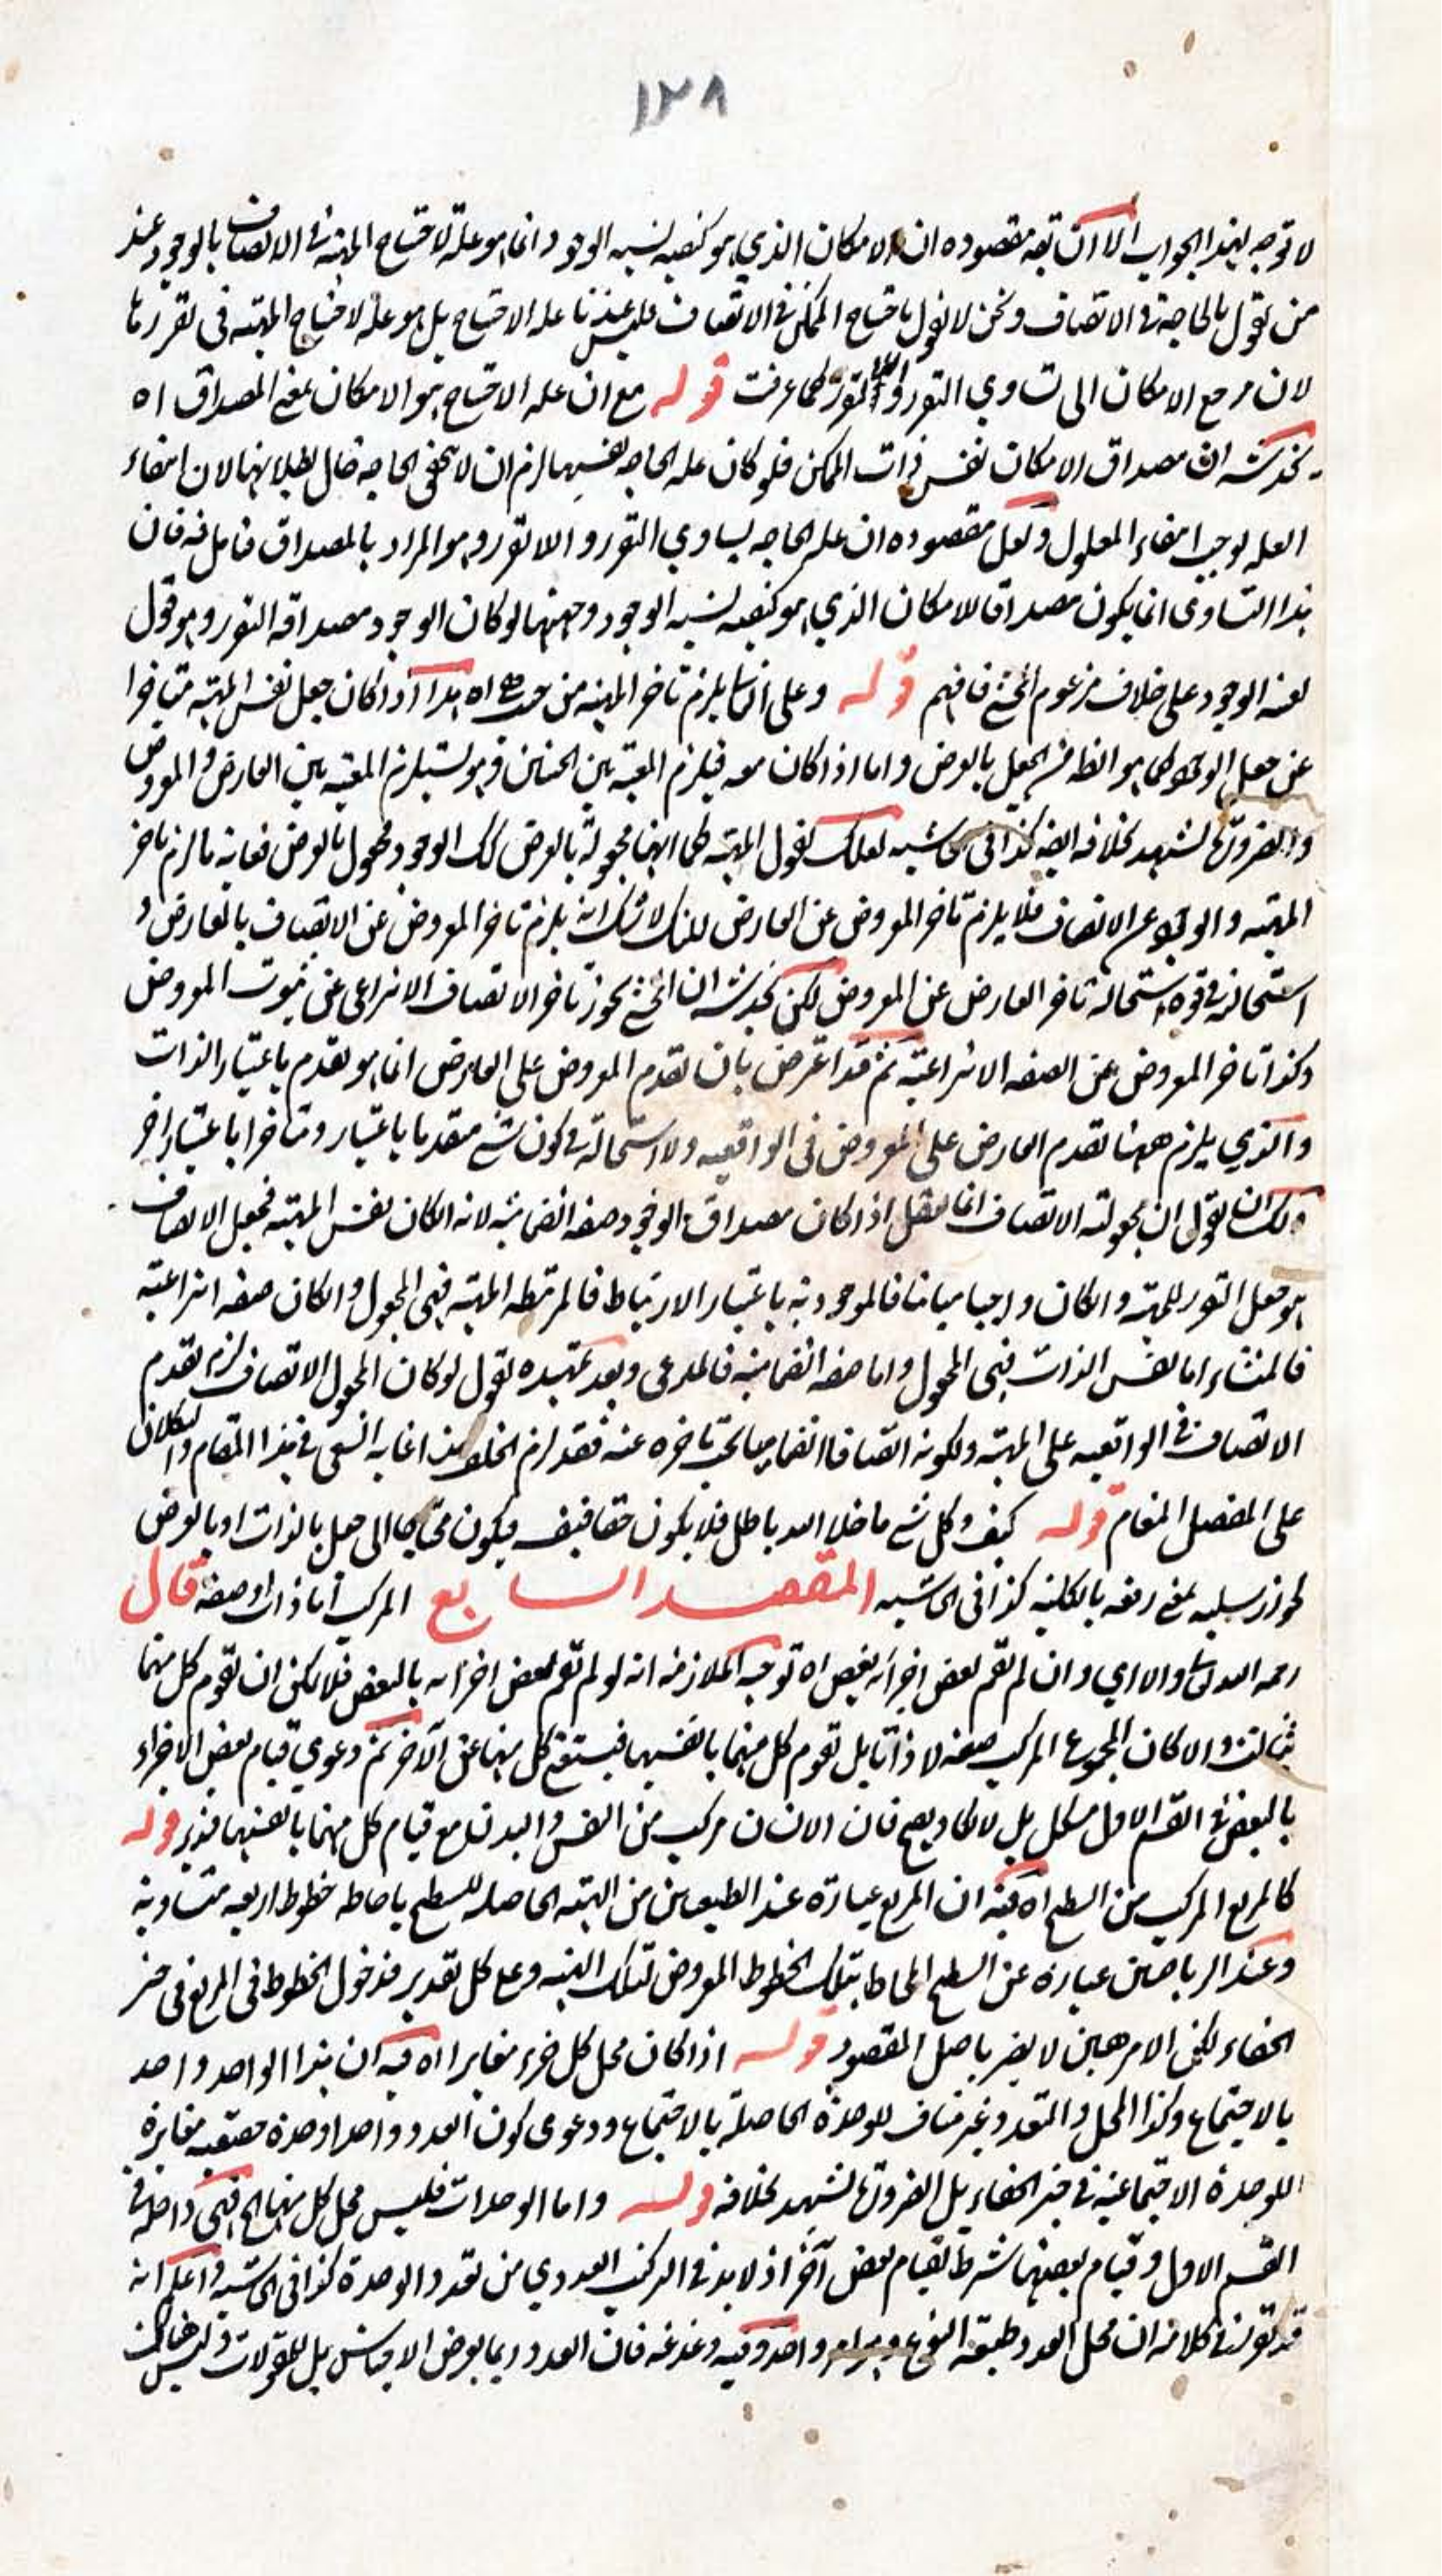 ١٢٨
لا توجه لهذا الجواب الا ان يقه مقصوده ان الامكان الذي هو كيفيه نسبه الوجود انما هو علة لاحتياج المهية في الاتصاف بالوجود عند
من يقول بالحاجة في الاتصاف ونحن لا نقول باحتياج الممكن في الاتصاف فليس عندنا علة الاحتياج بل هو علة لاحتياج المهيه في تقررها
لان مرجع الامكان الى تساوي التقرر واللاتقرر كما عرفت قوله مع ان علة الاحتياج هو الامكان بمعنى المصداق اه
يخدشه ان مصداق الامكان نفس ذات الممكن فلو كان علة الحاجة نفسها لزم ان لا يتحقق الحاجة حال بطلانها لان انتفاء
العلة يوجب انتفاء المعلول ولعل مقصوده ان علة الحاجه تساوي التقرر واللاتقرر وهو المراد بالمصداق فتامل فيه فان
هذا التساوى انما يكون مصداقا للامكان الذي هو كيفيه نسبه الوجود وجهتها لو كان الوجود مصداقه التقرر وهو قول
الوجود على خلاف مزعوم المحشي فافهم قوله وعلى الثاني يلزم تاخر المهية من حيث هي اه هذا اذا كان جعل نفس المهية متاخرا
عن جعل الوجود كما هو الظ من الجعل بالعرض واما اذا كان معه فيلزم المعية بين الجعلين وهو يستلزم المعيه بين العارض والمعروض
والضرورة تشهد بخلافه ايضه كذا في الحاشيه لعلك تقول المهية كما انها مجعولة بالعرض كك الوجود مجعول بالعرض فغاية ما لزم تاخر
المهيه والوجود عن الاتصاف فلا يلزم تاخر المعروض عن العارض قلنا لا شك انه يلزم تاخر المعروض عن الاتصاف بالعارض و
استحالته في قوه استحالة تاخر العارض عن المعروض لكن يخدشه ان المحشي يجوز تاخر الاتصاف الانتزاعى عن ثبوت المعروض
وكذا تاخر المعروض عن الصفه الانتزاعية ثم قد اعترض بان تقدم المعروض على العارض انما هو تقدم باعتبار الذات
والذي يلزم ههنا تقدم العارض على المعروض في الواقعيه ولا استحالة في كون شئ متقدما باعتبار ومتاخرا باعتبار اخر
ولك ان تقول ان مجعولية الاتصاف انما يعقل اذا كان مصداق الوجود صفه انضماميه لانه ان كان نفس المهيه فجعل الاتصاف
هو جعل التقرر للمهية وان كان واجبا مباينا فالموجوديه باعتبار الارتباط فالمرتبطه المهية فهى المجعول وان كان صفه انتزاعية
فالمنشاء اما نفس الذات فهى المجعول واما صفه انضماميه فالمدعى وبعد تمهيده نقول لو كان المجعول الاتصاف لزم تقدم
الاتصاف في الواقعيه على المهية ولكونه اتصافا انضماميا يجب تاخره عنه فقد لزم الخلف هذا غاية السعى في هذا المقام والتكلان
على المفضل المنعام قوله كيف وكل شئ ما خلا الله باطل فلا يكون حقا فيف فيكون محتاجا الى جعل بالذات او بالعرض
لجواز سلبه بمعنى رفعه بالكليه كذا في الحاشيه المقصد السابع المركب اما ذات او صفة قال
رحمه الله تعالى والا اي وان لم تقم بعض اجزائه ببعض اه توجيه الملازمه انه لو لم تقم بعض اجزائه بالبعض فلا يمكن ان تقوم كل منهما
بثالث والا كان المجموع المركب صفة لا ذاتا بل تقوم كل منهما بانفسها فيستغنى كل منهما عن الآخر ثم دعوي قيام بعض الاجزاء
بالبعض في القسم الاول مشكل بل لا يكاد يصح فان الانسان مركب من النفس والبدن مع قيام كل منهما بانفسهما فتدبر قوله
كالمربع المركب من السطح اه فيه ان المربع عبارة عند الطبيعيين من الهيئة الحاصله للسطح باحاطه خطوط اربعه متساوية
وعند الرياضيين عبارة عن السطح المحاط بتلك الخطوط المعروض لتلك الهيئه وعلى كل تقدير فدخول الخطوط في المربع في حيز
الخفاء لكن الامر هين لا يضر باصل المقصود قوله اذا كان محل كل جزء مغايرا اه فيه ان هذا الواحد واحد
بالاجتماع وكذا المحل والتعدد غير مناف للوحدة الحاصلة بالاجتماع ودعوى كون العدد واحدا وحدة حقيقيه مغايرة
للوحدة الاجتماعية في حيز الخفاء بل الضرورة تشهد بخلافه قوله واما الوحدات فليس محل كل منها الخ فهى داخلة في
القسم الاول وقيام بعضها شرط لقيام بعض آخر اذ لا بد في المركب العددي من تعدد الوحدة كذا في الحاشيه واعلم انه
قد تقرر في كلامه ان محل العدد طبيعة النوع وهو امر واحد وفيه دغدغه فان العدد ربما يعرض الاجناس بل المقولات وليس هناك